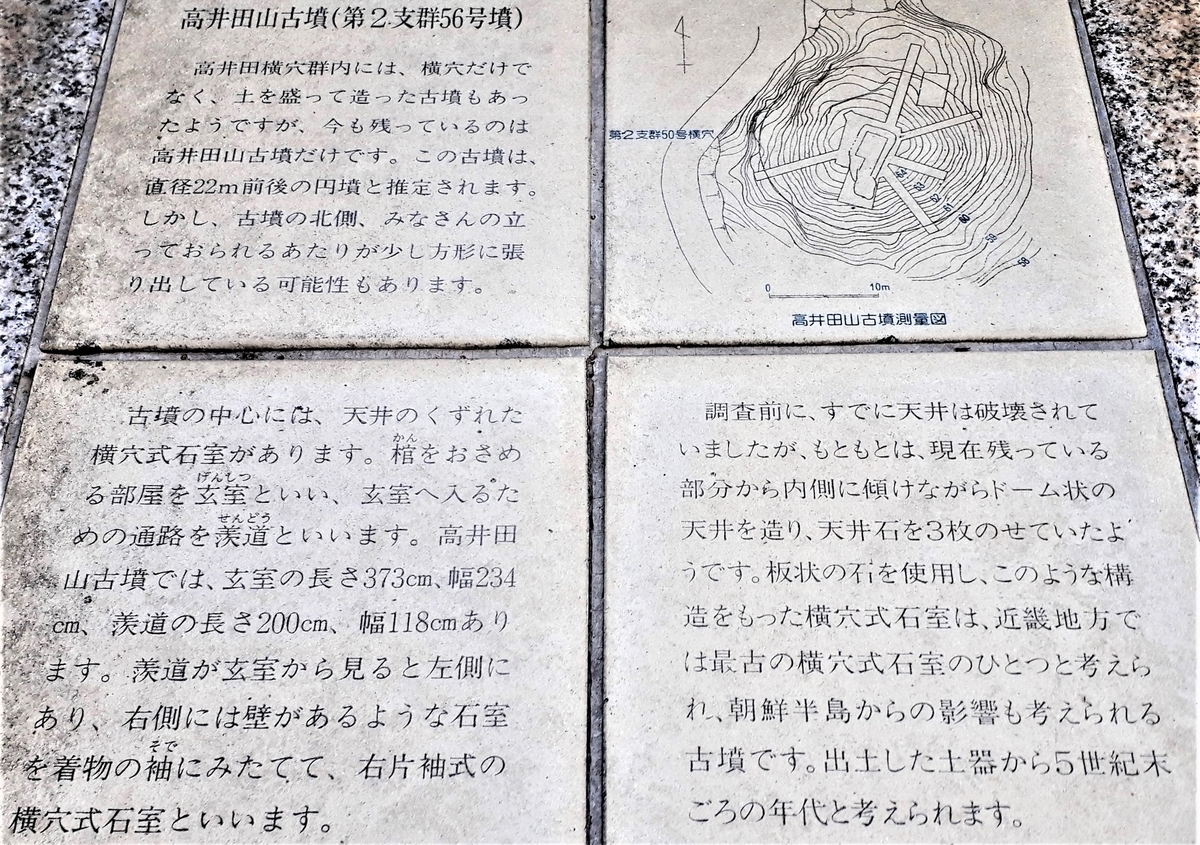 高井田山古墳(第2支群56号墳)
高井田横穴群内には、横穴だけで
なく、土を盛って造った古墳もあっ
たようですが、今も残っているのは
高井田山古墳だけです。この古墳は、
直径22m前後の円墳と推定されます。
しかし、古墳の北側、みなさんの立
っておられるあたりが少し方形に張
り出している可能性もあります。
第2支群50号横穴
0 10m
高井田山古墳測量図
古墳の中心には、天井のくずれた
横穴式石室があります。棺をおさめ
かん
る部屋を玄室といい、玄室へ入るた
げんしつ
めの通路を羨道といいます。高井田
せんどう
山古墳では、玄室の長さ373cm、幅234
cm、羨道の長さ200cm、幅118cmあり
ます。羨道が玄室から見ると左側に
あり、右側には壁があるような石室
を着物の袖にみたてて、右片袖式の
そで
横穴式石室といいます。
調査前に、すでに天井は破壊されて
いましたが、もともとは、現在残っている
部分から内側に傾けながらドーム状の
天井を造り、天井石を3枚のせていたよ
うです。板状の石を使用し、このような構
造をもった横穴式石室は、近畿地方で
は最古の横穴式石室のひとつと考えら
れ、朝鮮半島からの影響も考えられる
古墳です。出土した土器から5世紀末
ごろの年代と考えられます。